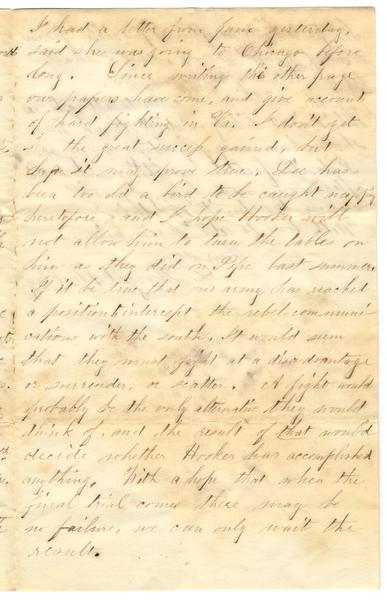 I had a letter from Jane yesterday,
said she was going to Chicago before
long. Since writing the other page
our papers have come, and give account
of hard fighting in Va. I don't yet
see the great success gained, but
hope it may prove true. Lee has
been too old a bird to be caught napping
heretofore and I hope Hooker will
not allow him to turn the tables on
him as they did on Pope last summer.
If it be true that our army has reached
a position to intercept the rebel communi-
cations with the south, It would seem
that they must fight at a disadvantage
or surrender, or scatter. A fight would
probably be the only alternative they would
think of; and the result of that would
decide whether Hooker has accomplished
anything. With a hope that when the
final trial comes there may be
no failure, we can only wait the
result.